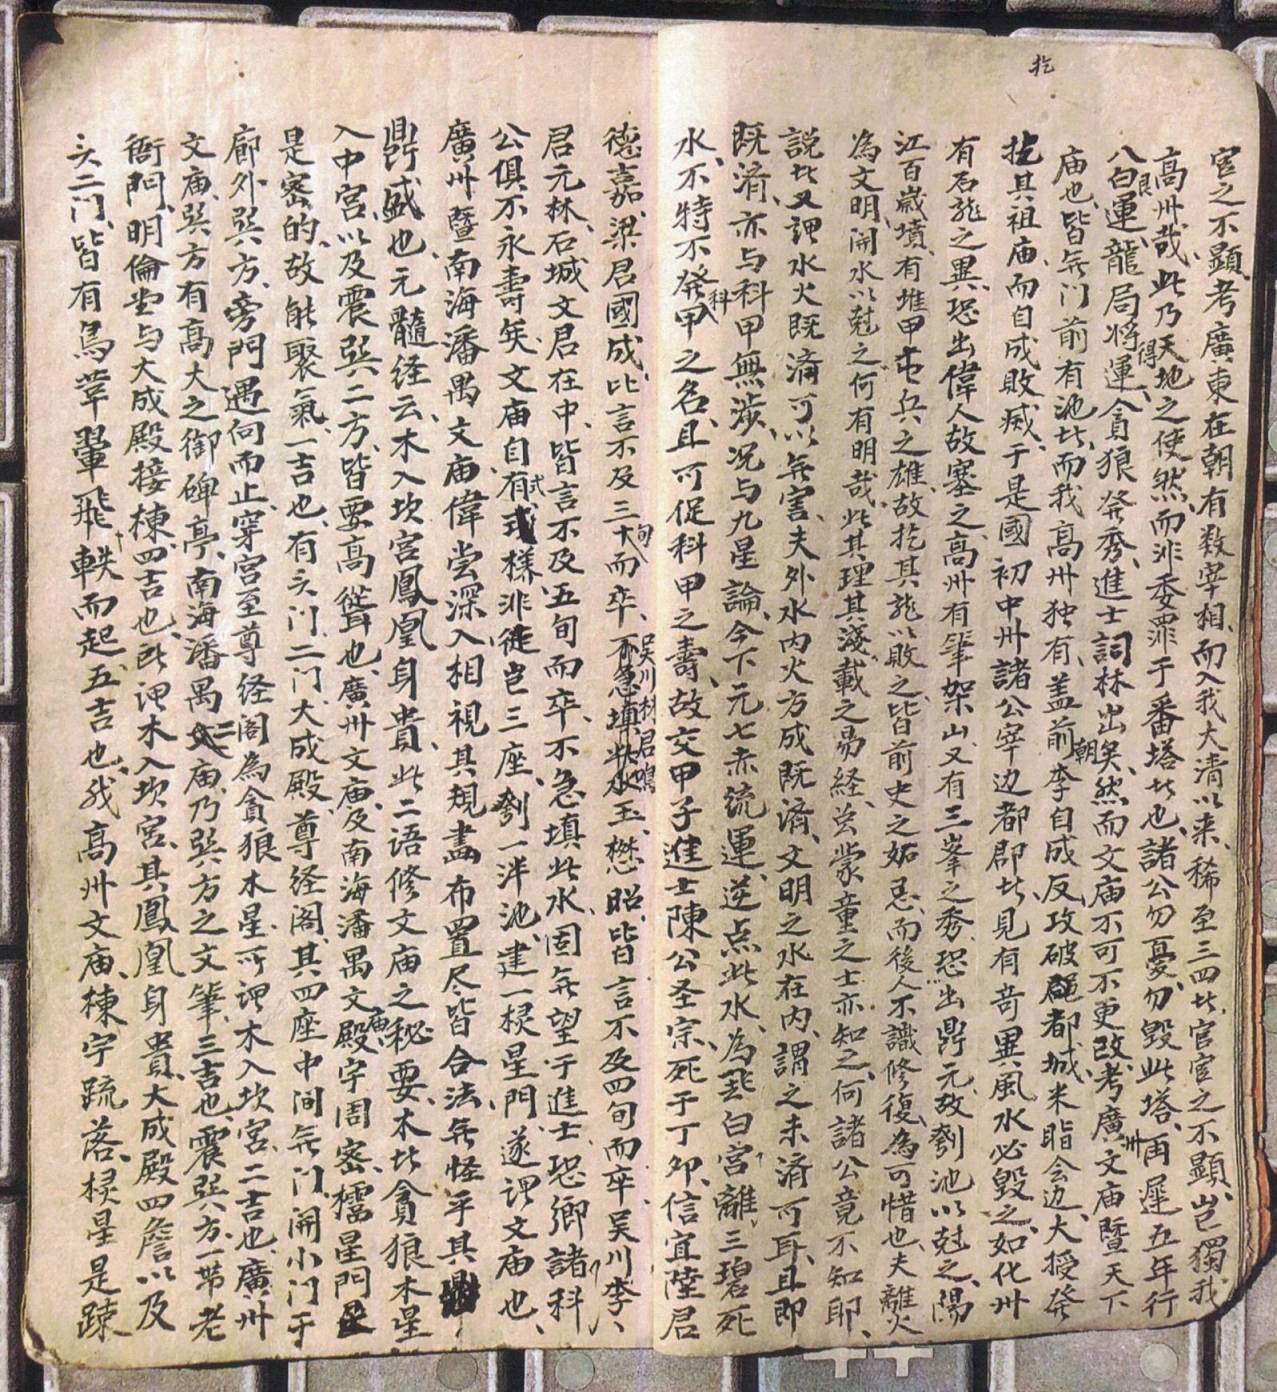 官之不顯、考廣東在朝有数宰相、而入我大清以来、稀至三四比、官宦之不顯、豈獨我
高州哉、此乃天地之使然、而非委罪于番塔比也、諸公勿憂、勿毁此塔、再遲五年行
八白艮運、龍局将得運、貪狼発秀、進士詞林出矣、然而文庙不可不更改、考廣州文庙暨天下
庙也、皆無门前有池比、而我高州独有、盖前朝李自成反、攻破都城、米脂会边大授発
挖其祖庙、而自成敗威、于是國初中州諸公宰边都郡比、見有奇異風水必毁之、如化州
挖
有石龍之異、恐出偉人、故塞之、高州有筆架山、又有三峯之秀、恐出鼎元、故劉池以尅之、陽
江百歲墳、有堆甲屯兵之雄、故挖其龍以敗之、皆前史之妬忌、而後人不識修復、為可惜也、夫離火
為文明、開水以尅之、何有明哉、此其理其淺、載之易経、虽蒙童之士亦知之、何諸公竟不知耶、
説比又謂水火既済可以無害、夫外水内火方成既済、文明之水在内、謂之未済可耳、且即
既済、亦与科甲無涉、况与九星論、今下元七赤统運、逆点此水、為 白宫離、三碧死
水、不特不発科甲之名、且可促科甲之壽、故交甲子進士陳公圣宗、死于丁卯、信宜陸君
德嘉、梁君國成、比言不及三旬而卒、吴川林君 玉懋昭、皆言不及四旬而卒、吴川李
君元林、石城文君在中、皆言不及五旬而卒、不急填此水、固無望于進士、恐鄉諸科
公俱不永壽矣、文庙自有式様、非徒岂三座、劉一泮池、建一棂星门、遂謂文庙也、
廣州暨南海潘禺文庙偉尝深入相視、其規畫布置尽皆合法、無怪乎其
鼎盛也、元髓経云、木入坎宫鳳凰身貴、此二语修文庙之秘要、木比貪狼木星
入中宫、以及震巽二方、皆要高聳也、廣州文庙及南海潘禺文庙殿宇周密、檽星门
是密的、故能聚氣、一吉也、有头门二门大成殿、尊经阁、其四座中间無门、開小门于
廊外巽方、旁門遇向而止、穿宫至尊経阁為貪狼木星、所谓木入坎宫、二吉也、廣州
文庙、巽方有高大之御碑亭、南海潘禺二庙、乃巽方之文筆、三吉也、震巽方、一带老
衙門、明倫堂与大成殿接棟、四吉也、所谓木入坎宫、其鳳凰身貴、大成殿四詹以及
头二门、皆有鳥革翬飛軼而起、五吉也、我高州文庙、棟宇疏落、棂星是踈